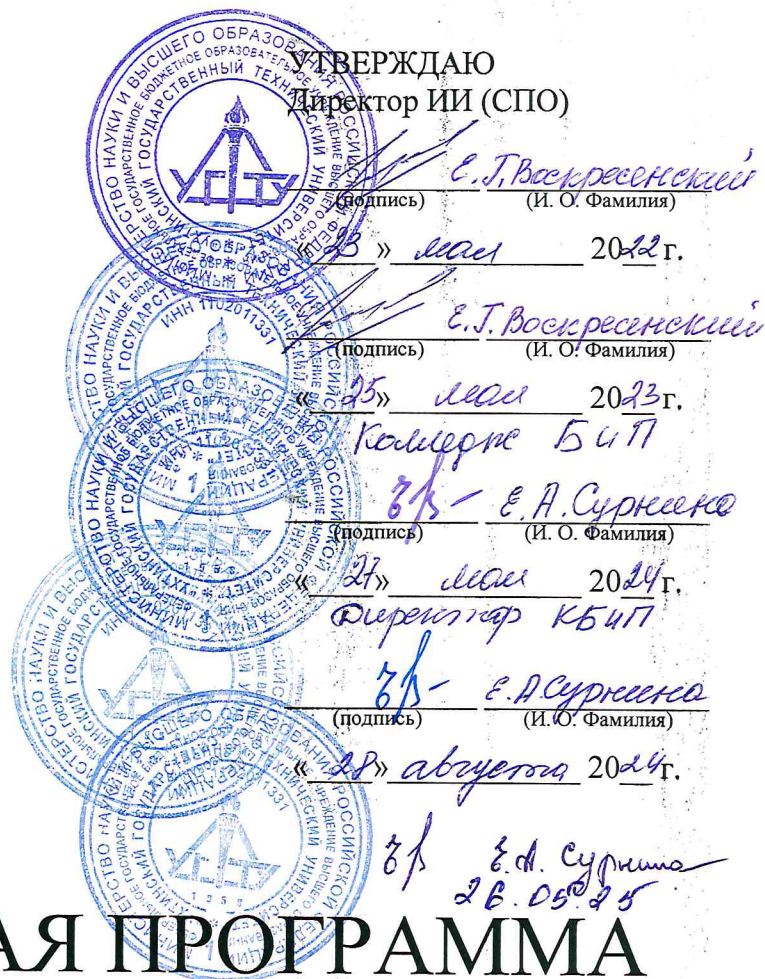 УТВЕРЖДАЮ
Директор ИИ (СПО)
Е. Г. Воскресенский
(подпись) (И. О. Фамилия)
«23» мая 2022 г.
Е. Г. Воскресенский
(подпись) (И. О. Фамилия)
«25» мая 2023 г.
Колледж БиП
Е. А. Сурнина
(подпись) (И. О. Фамилия)
«27» мая 2024 г.
Директор КБиП
Е. А. Сурнина
(подпись) (И. О. Фамилия)
«28» августа 2024 г.
Е. А. Сурнина
26.05.25
АЯ ПРОГРАММА
УГТУ
ИНН 1102011331